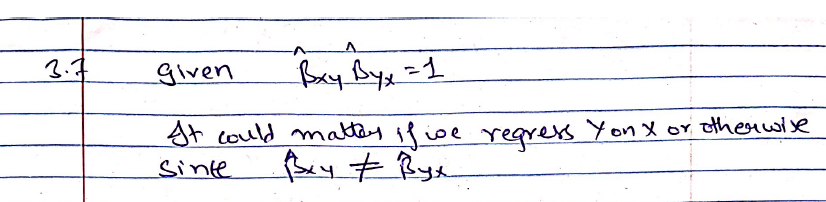 3.7 given β̂xy β̂yx = 1
It could matter if we regress Y on X or otherwise
since β̂xy ≠ β̂yx